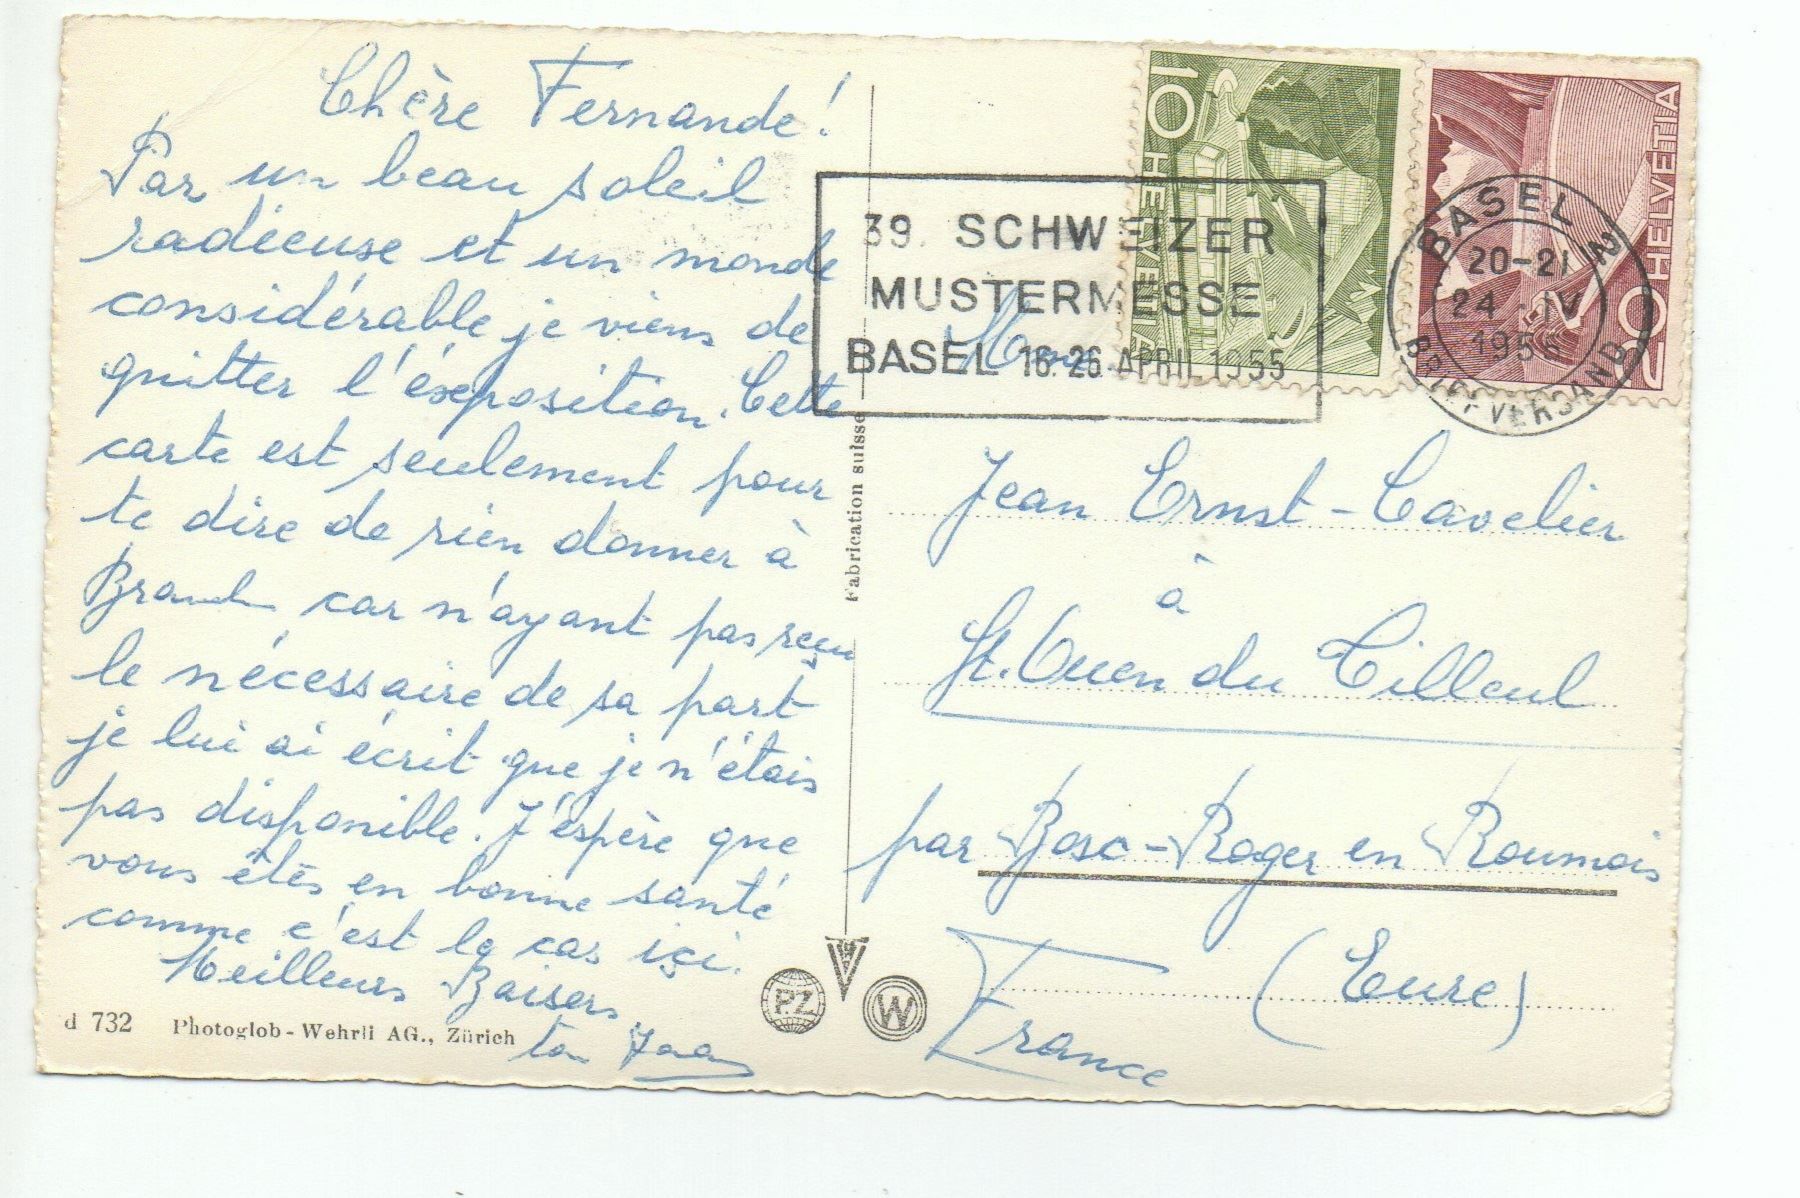 Chère Fernande!
Par un beau soleil
radieuse et un monde
considérable je viens de
quitter l'éxposition. Cette
carte est seulement pour
te dire de rien donner à
car n'ayant pas reçu
le nécessaire de sa part
je lui ai écrit que je n'étais
pas disponible. J'éspère que
vous êtes en bonne santé
comme c'est le cas içi.
Meilleurs Baisers
ton
d 732 Photoglob-Wehrli AG., Zürich
Fabrication suisse
PZ
W
39. SCHWEIZER
MUSTERMESSE
BASEL 16-26 APRIL 1955
10 HELVETIA
20 HELVETIA
BASEL 2
20-21
24 IV
1955
BRIEFVERSAND
Jean Ernst-Cavelier
à
St. Ouen du Tilleul
par Bosc-Roger en Roumois
(Eure)
France